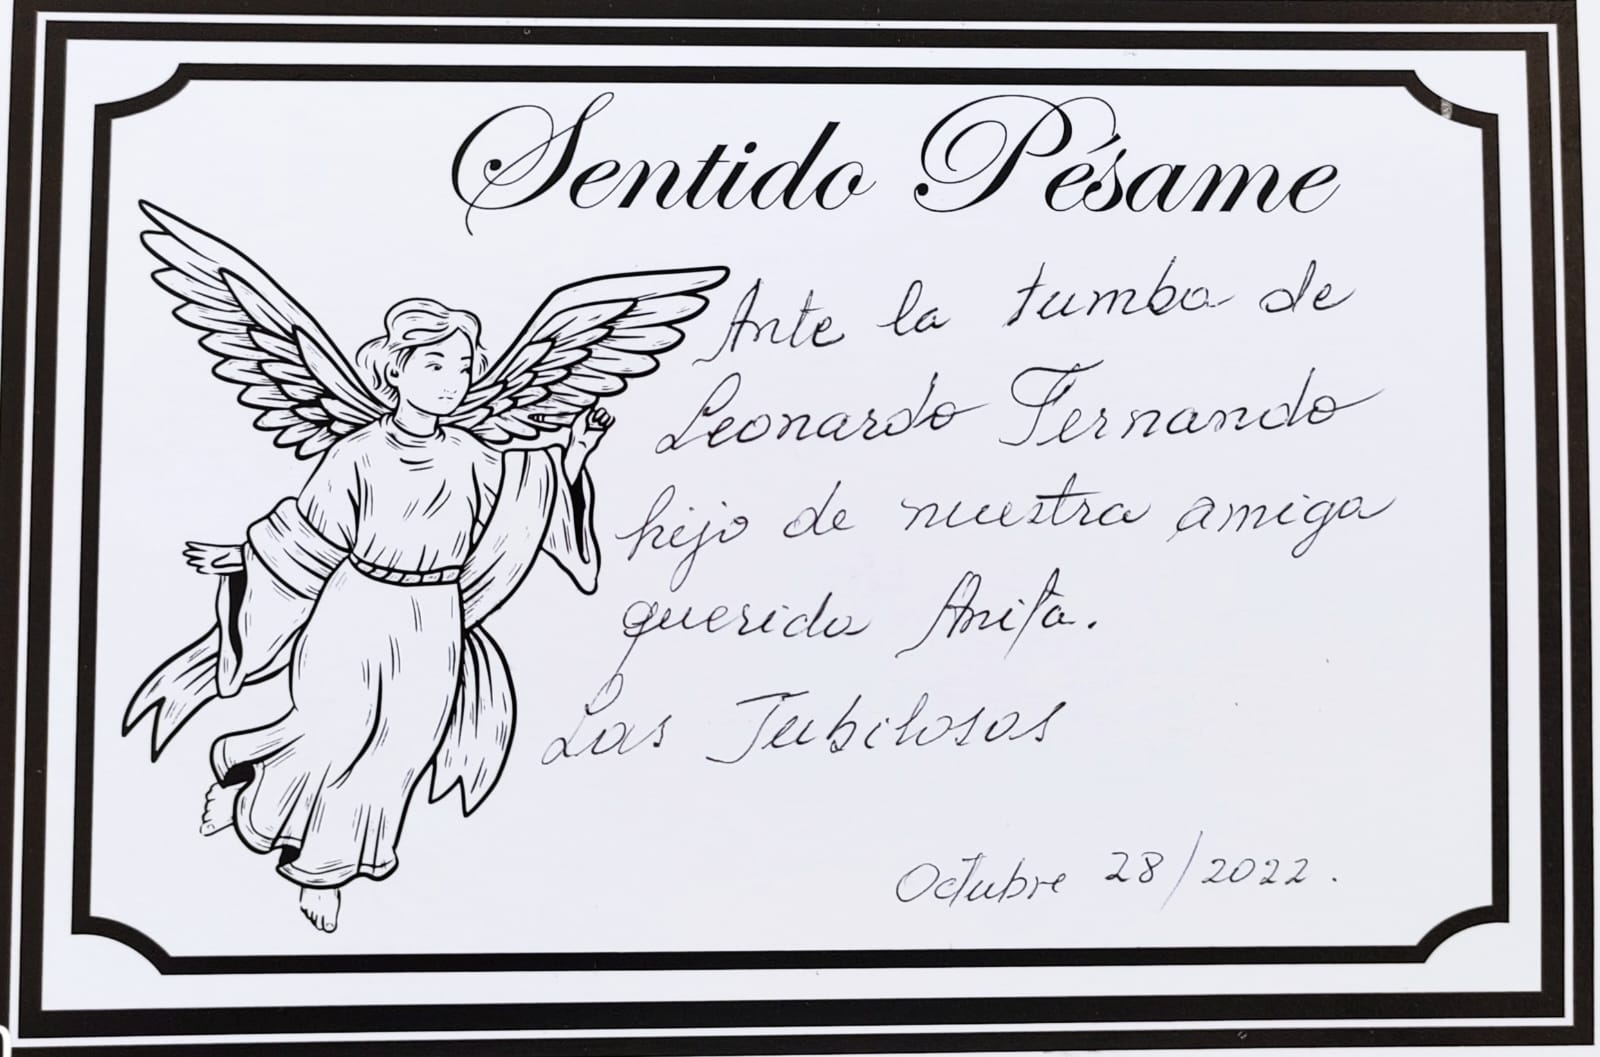 Sentido Pésame
Ante la tumba de
Leonardo Fernando
hijo de nuestra amiga
querida Anita.
Las Jubilosas
Octubre 28/2022.